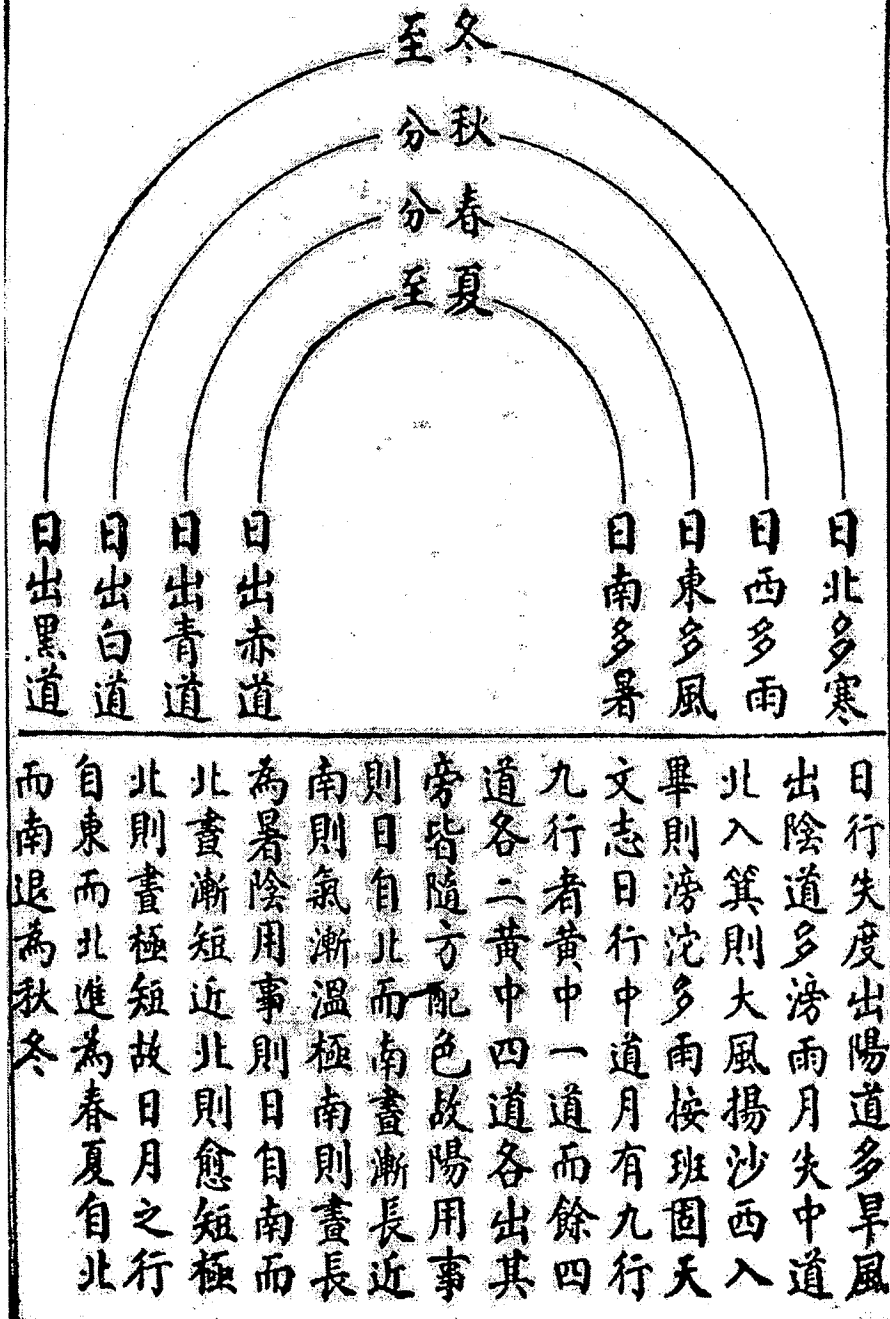 冬至
秋分
春分
夏至
日北多寒
日西多雨
日東多風
日南多暑
日出赤道
日出青道
日出白道
日出黑道
日行失度出陽道多旱風
出陰道多滂雨月失中道
北入箕則大風揚沙西入
畢則滂沱多雨按班固天
文志日行中道月有九行
九行者黃中一道而餘四
道各二黃中四道各出其
旁皆隨方配色故陽用事
則日自北而南晝漸長近
南則氣漸溫極南則晝長
為暑陰用事則日自南而
北晝漸短近北則愈短極
北則晝極短故日月之行
自東而北進為春夏自北
而南退為秋冬